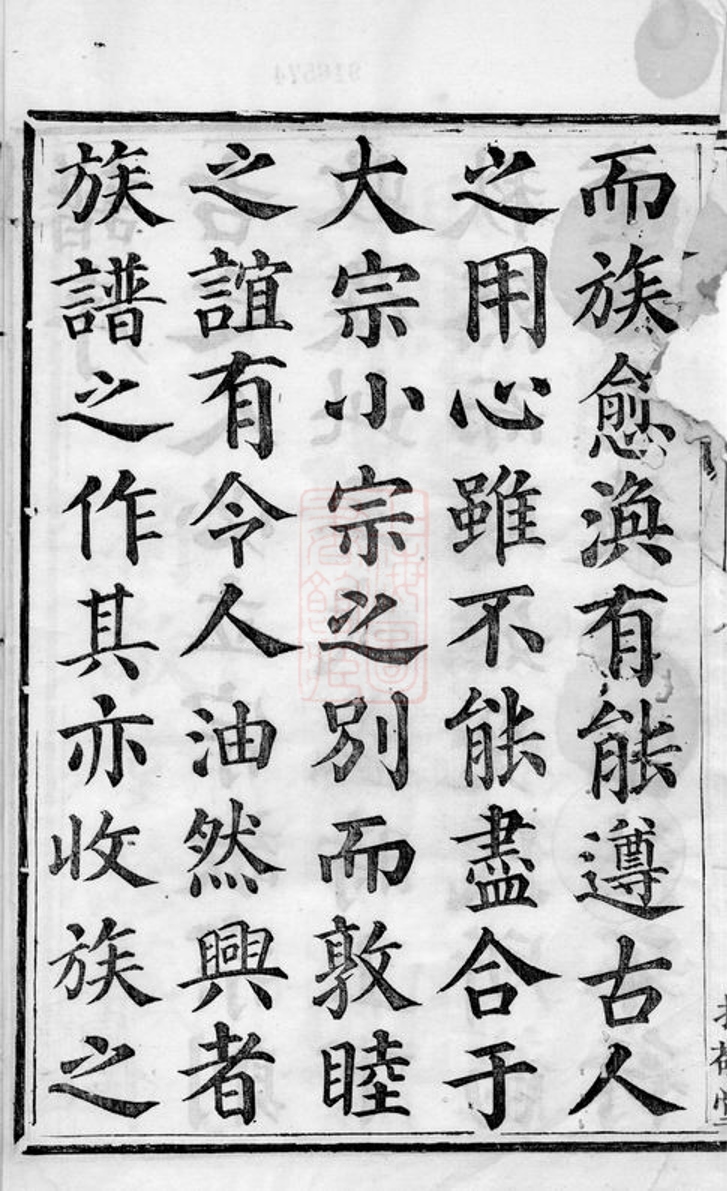 而族愈渙有能遵古人
之用心雖不能盡合于
大宗小宗之別而敦睦
之誼有令人油然興者
族譜之作其亦收族之